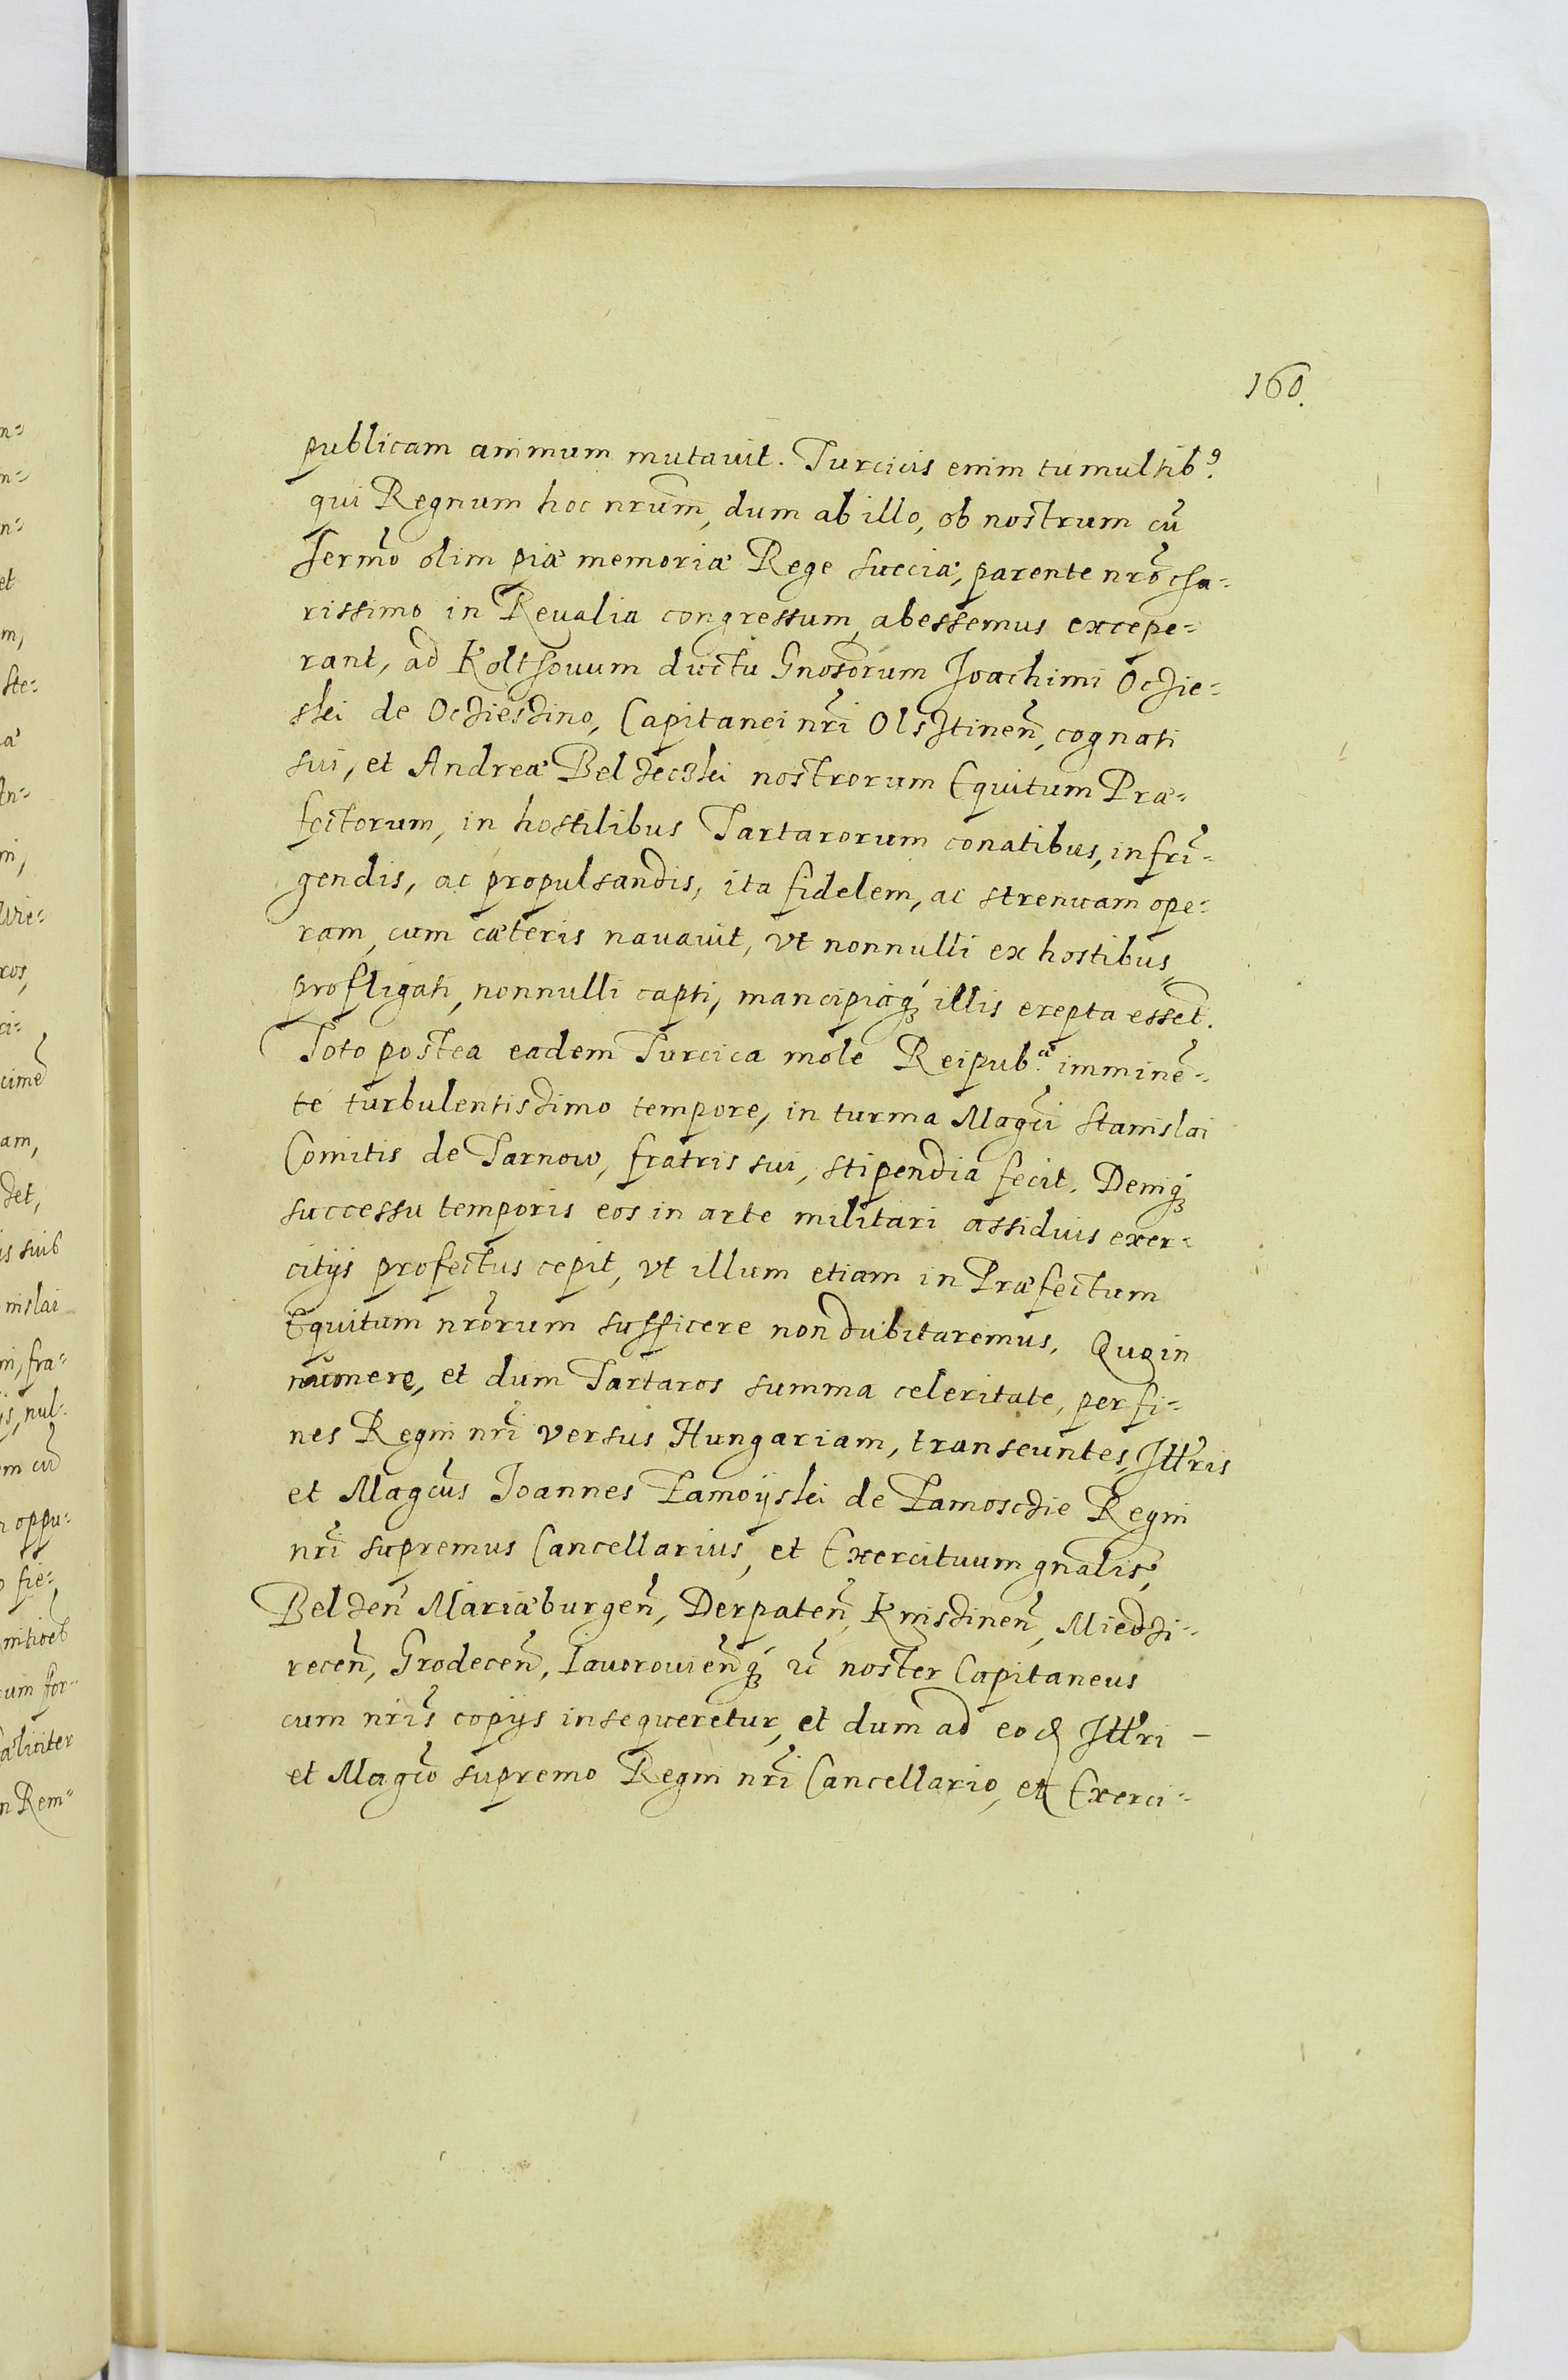 160.
publicam animum mutauit. Turcicis enim tumultib9.
qui Regnum hoc nrũm, dum ab illo, ob nostrum cũ
Sermõ olim piæ memoriæ Rege Sueciæ, parente nrõ cha-
rissimo in Reualia congressum, abessemus excepe-
rant, ad Koltsouum ductu Gnosorum Joachimi Oczie-
slei de Ocziesdino, Capitanei nrĩ Olsztinen̄, cognati
sui, et Andreæ Belzeczlei nostrorum Equitum Præ-
fectorum, in hostilibus Tartarorum conatibus, infrĩ-
gendis, ac propulsandis, ita fidelem, ac strenuam ope-
ram, cum cæteris nauauit, vt nonnulli ex hostibus
profligati, nonnulli capti, mancipiaq́ illis erepta essēt.
Toto postea eadem Turcica mole Reipub.æ imminẽ-
te turbulentissimo tempore, in turma Magcĩ Stanislai
Comitis de Tarnow, fratris sui, stipendia fecit. Deniq́
successu temporis eos in arte militari assiduis exer-
citijs profectus cepit, vt illum etiam in Præfectum
Equitum nrõrum sufficere non dubitaremus. Quo in
munere, et dum Tartaros summa celeritate, per fi-
nes Regni nrĩ versus Hungariam, transeuntes, Ill̃ris
et Magcũs Joannes Zamoijslei de Zamosczie Regni
nrĩ supremus Cancellarius, et Exercituum gnãlis,
Belzen̄ Mariæburgen̄, Derpaten̄, Knisdinen̄, Miedzi-
recen̄, Grodecen̄, Iauorouien̄q́ zc̄ noster Capitaneus
cum nrĩs copijs insequeretur, et dum ad eod Ill̃ri -
et Magcõ supremo Regni nrĩ Cancellario, et Exerci-